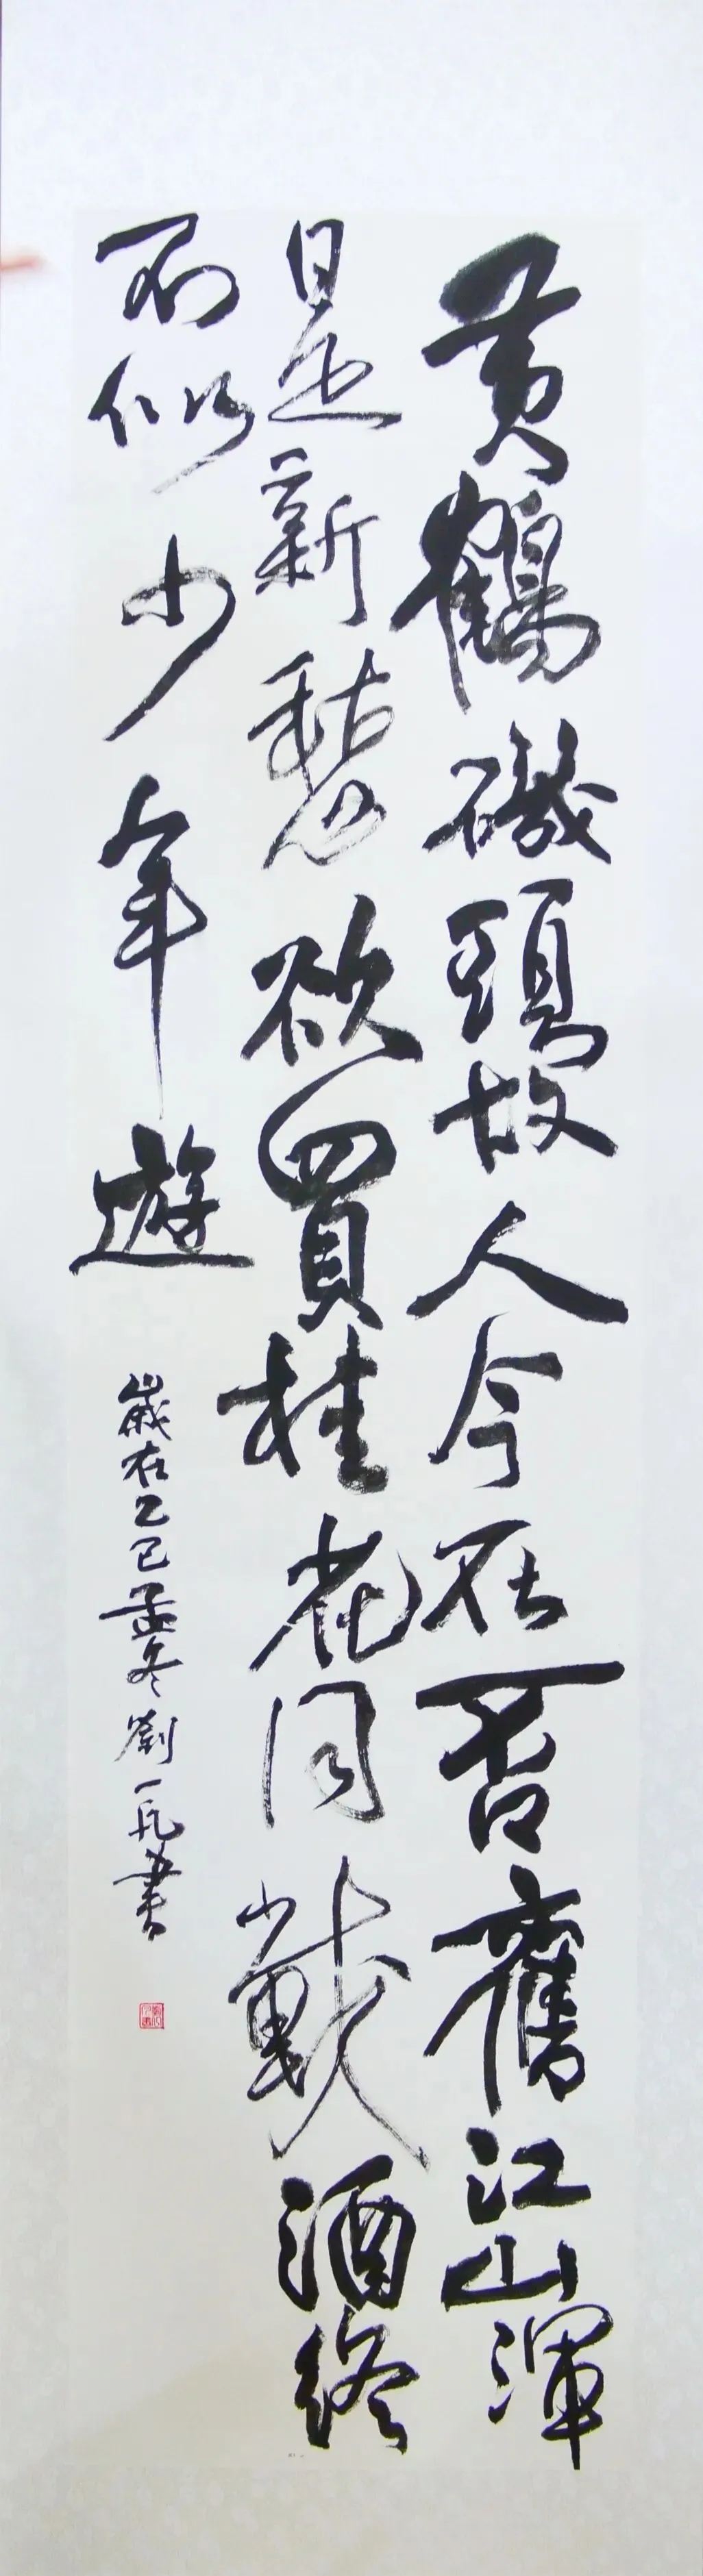 黄鶴磯頭故人今在否舊江山渾
是新愁欲買桂花同載酒終
不似少年遊
歲在乙巳孟冬劉一凡書